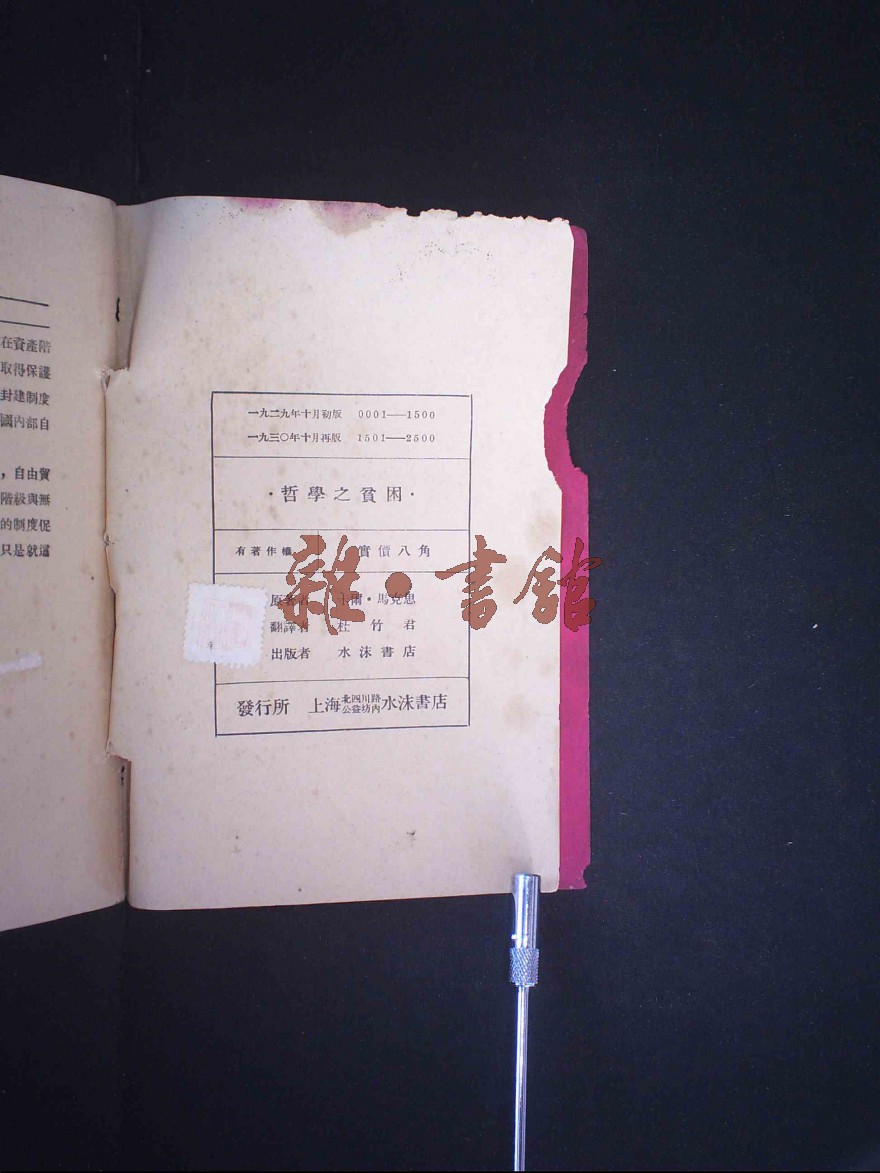 一九二九年十月初版 0001——1500
一九三〇年十月再版 1501——2500
·哲學之貧困·
有著作權 實價八角
原著者 卡爾·馬克思
翻譯者 杜竹君
出版者 水沫書店
發行所 上海北四川路公益坊內水沫書店
雜·書館
在資產階
取得保護
封建制度
國內部自
，自由貿
階級與無
的制度促
只是就這